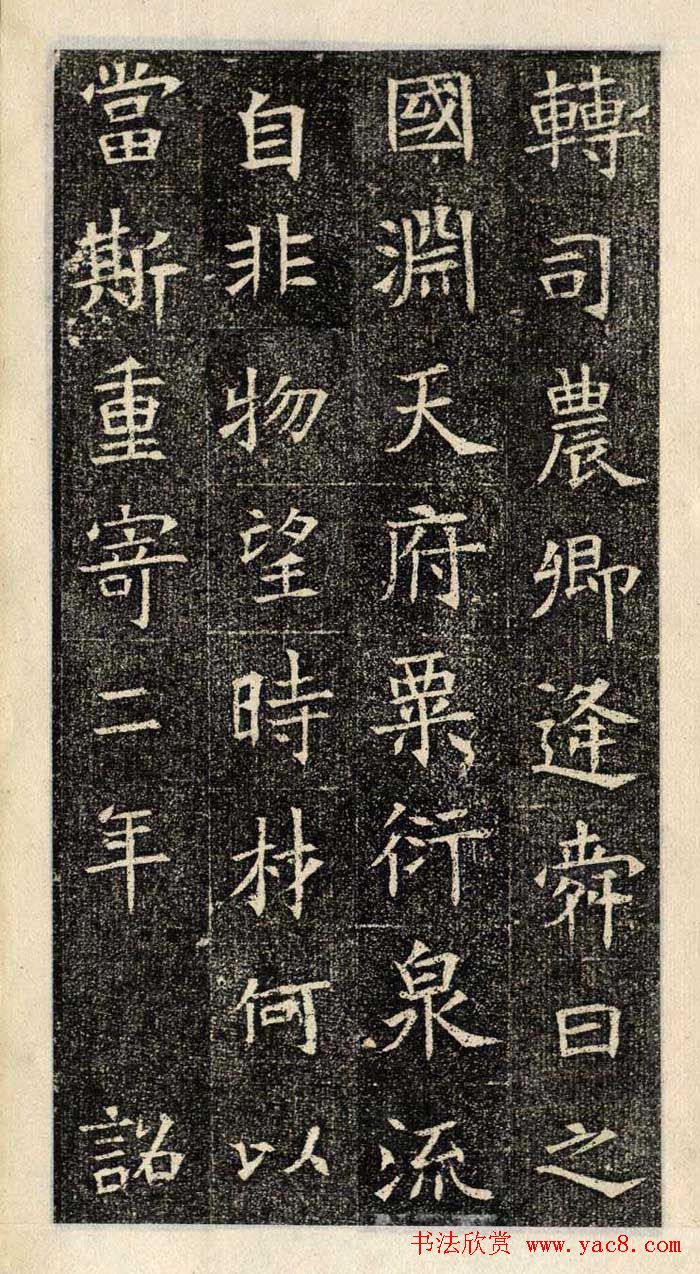 轉司農卿逢舜日之
國淵天府粟衍泉流
自非物望時材何以
當斯重寄二年 詺
书法欣赏 www.yac8.com